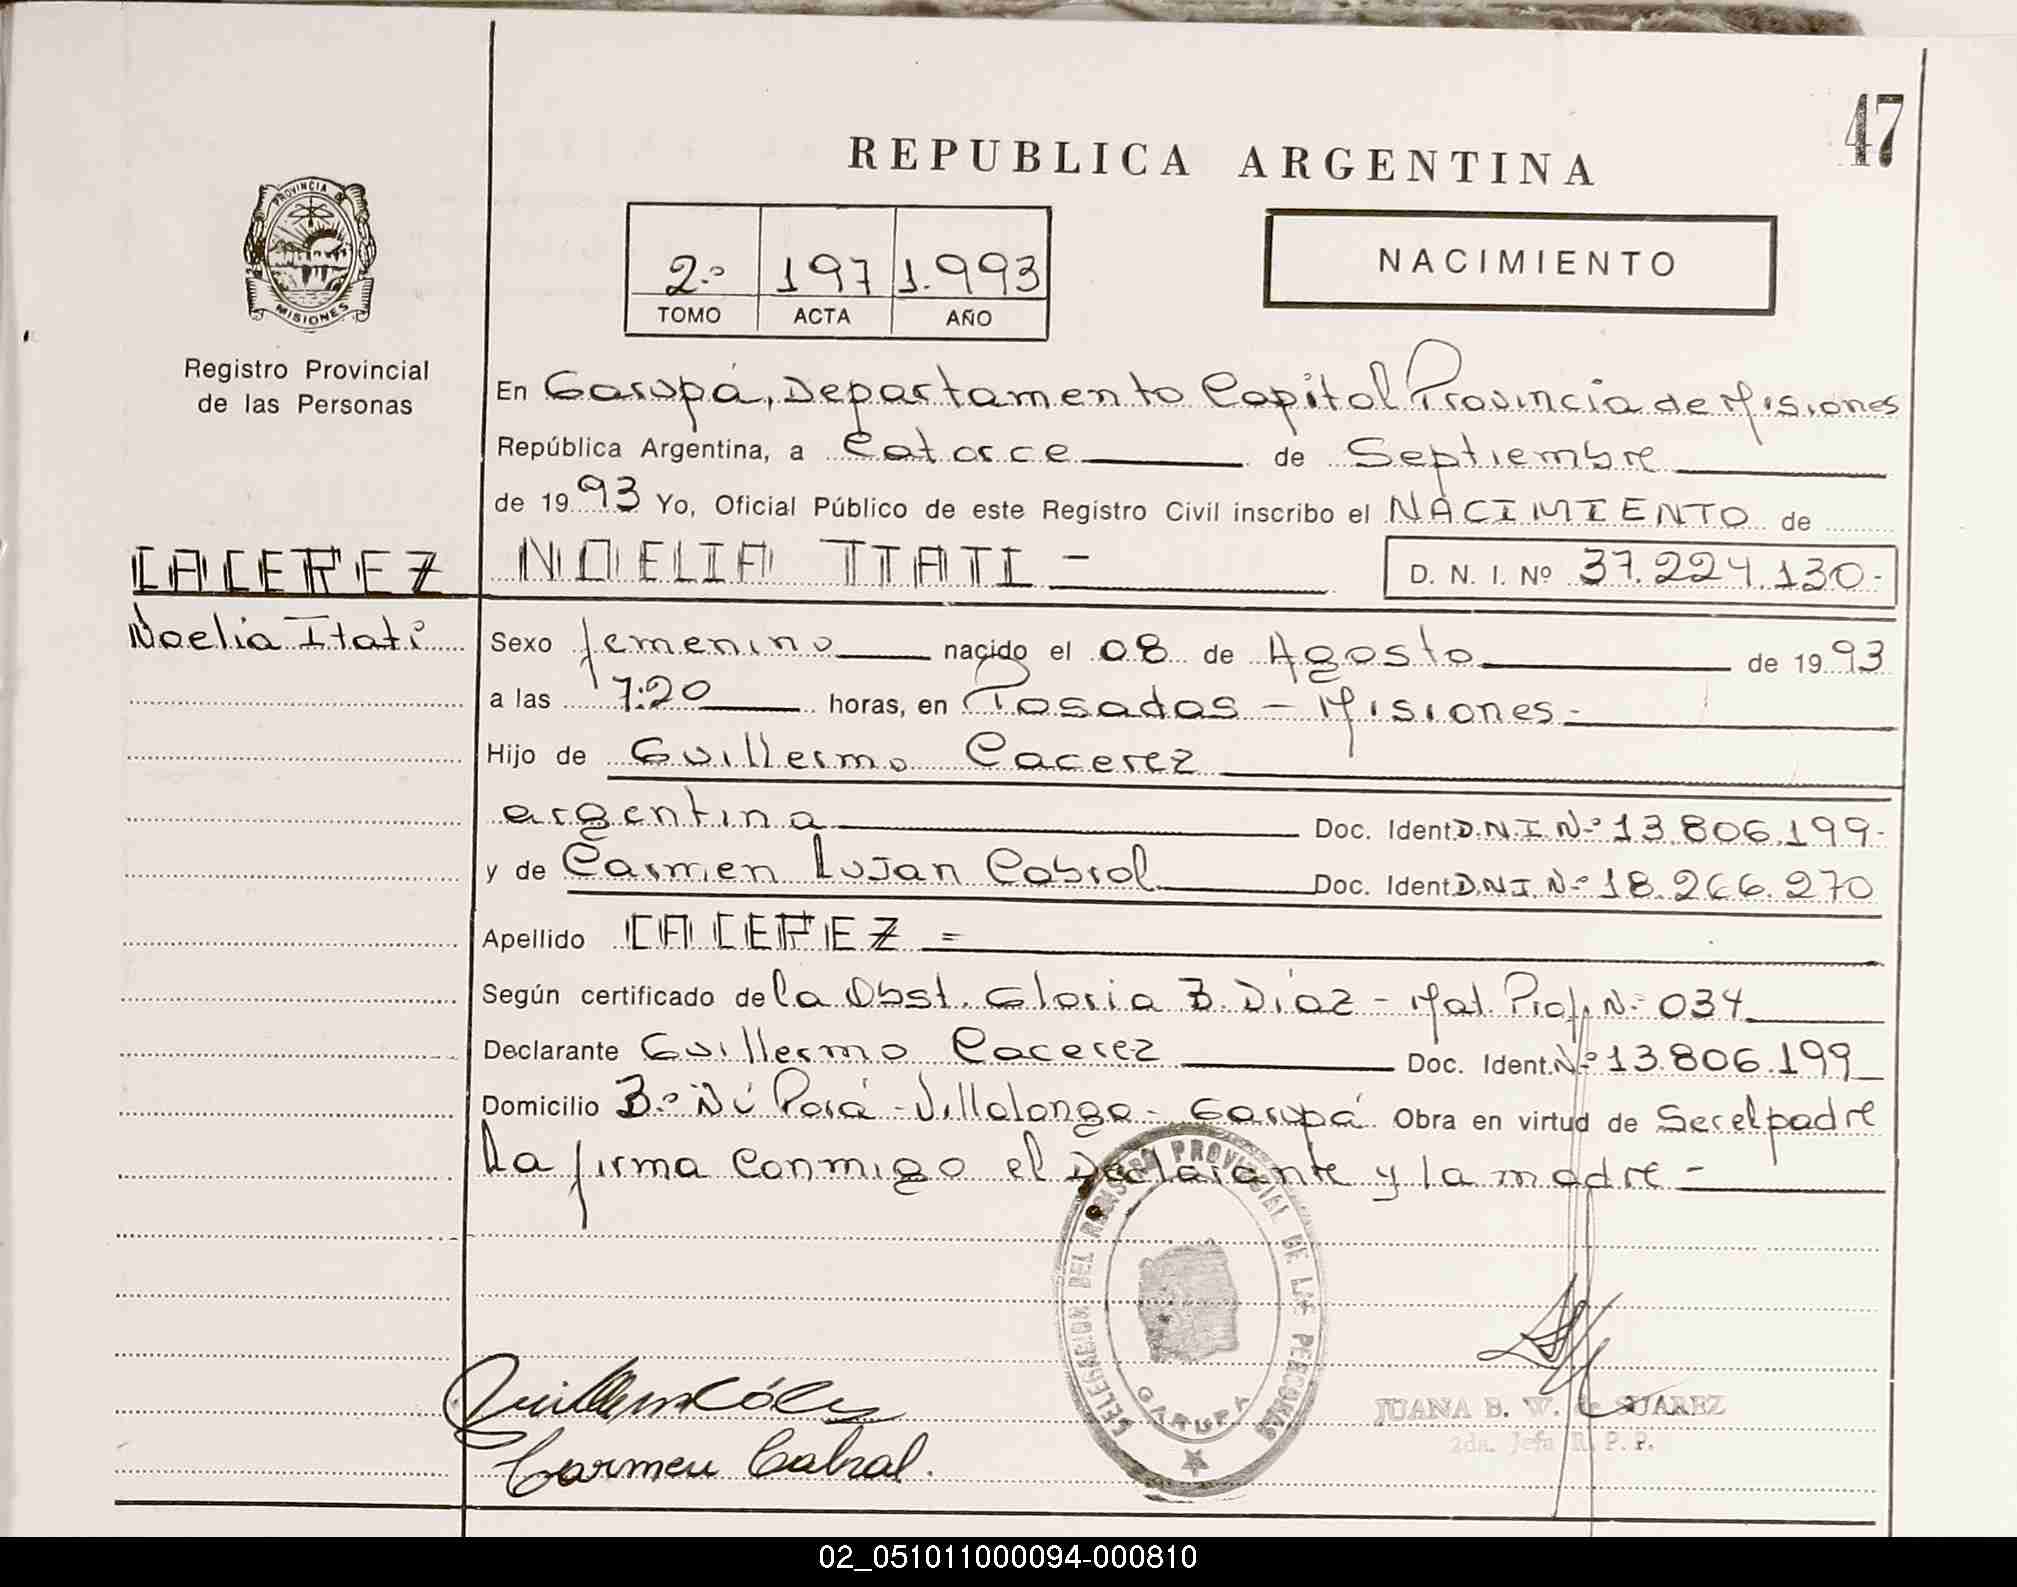 47
REPUBLICA ARGENTINA
PROVINCIA DE
MISIONES
Registro Provincial
de las Personas
2º 197 1.993
TOMO ACTA AÑO
NACIMIENTO
En Garupá, Departamento Capital Provincia de Misiones
República Argentina, a Catorce de Septiembre
de 1993 Yo, Oficial Público de este Registro Civil inscribo el NACIMIENTO de
CACEREZ NOELIA ITATI - D. N. I. Nº 37.224.130-
Noelia Itati Sexo femenino nacido el 08 de Agosto de 1993
a las 7:20 horas, en Posadas - Misiones-
Hijo de Guillermo Cacerez
argentina Doc. Ident D.N.I. Nº 13.806.199-
y de Carmen Lujan Cabral Doc. Ident D.N.I. Nº 18.266.270
Apellido CACEREZ =
Según certificado de la Obst. Gloria B. Díaz - Mat. Prof. Nº 034
Declarante Guillermo Cacerez Doc. Ident. Nº 13.806.199
Domicilio Bº Ñú Porá - Villalonga - Garupá Obra en virtud de Ser el padre
La firma Conmigo el Declarante y la madre -
DELEGACION DEL REGISTRO PROVINCIAL DE LAS PERSONAS
GARUPA
JUANA B. W. de SUAREZ
2da. Jefa R. P. P.
Carmen Cabral.
02_051011000094-000810